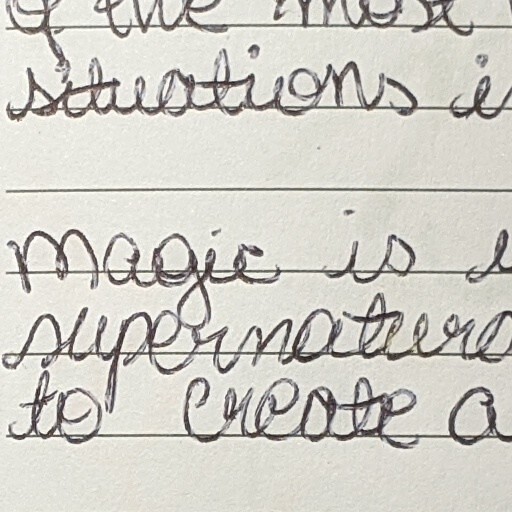 of the most
situations i
magic is
supernatura
to create a